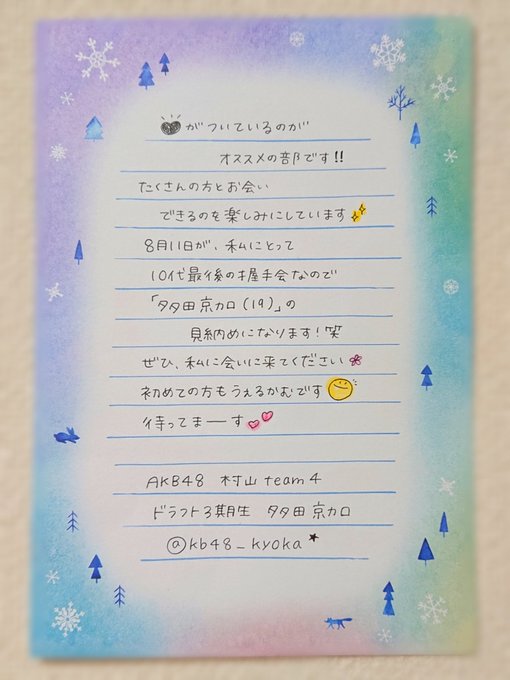 ♥がついているのが
オススメの部です!!
たくさんの方とお会い
できるのを楽しみにしています✨
8月11日が、私にとって
10代最後の握手会なので
「多田京加(19)」の
見納めになります!笑
ぜひ、私に会いに来てください
初めての方もうぇるかむです
待ってまーす💕
AKB48 村山team4
ドラフト3期生 多田京加
@kb48_kyoka★